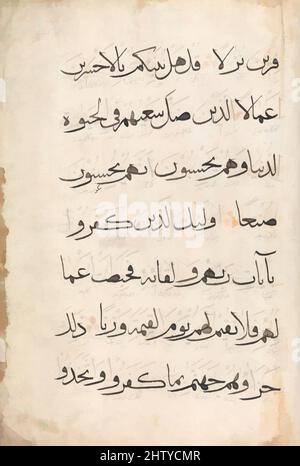 فرين نزلا قل هل ننبئكم بالاخسرين
عملا الذين ضل سعيهم في الحيوة
الدنيا وهم يحسبون انهم يحسنون
صنعا اوليك الذين كفروا
بآيات ربهم ولقائه فحبطت اعما
لهم فلا نقيم لهم يوم القيمة وزنا ذلك
جزاوهم جهنم بما كفروا واتخذوا
alamy
Image ID: 2HTYCMR
www.alamy.com